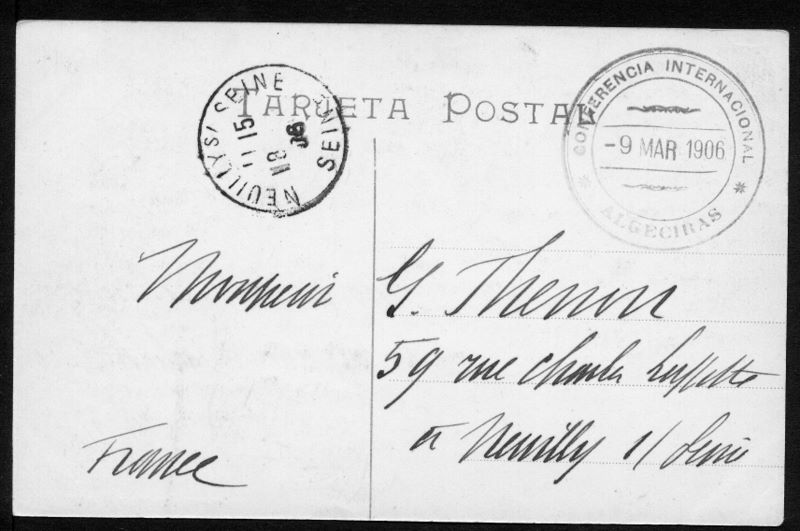 TARJETA POSTAL
NEUILLY S/ SEINE
11 15
06
SEINE
CONFERENCIA INTERNACIONAL
-9 MAR 1906
* ALGECIRAS *
Monsieur
G. Thenon
59 rue Charles Laffitte
à Neuilly s/ Seine
France